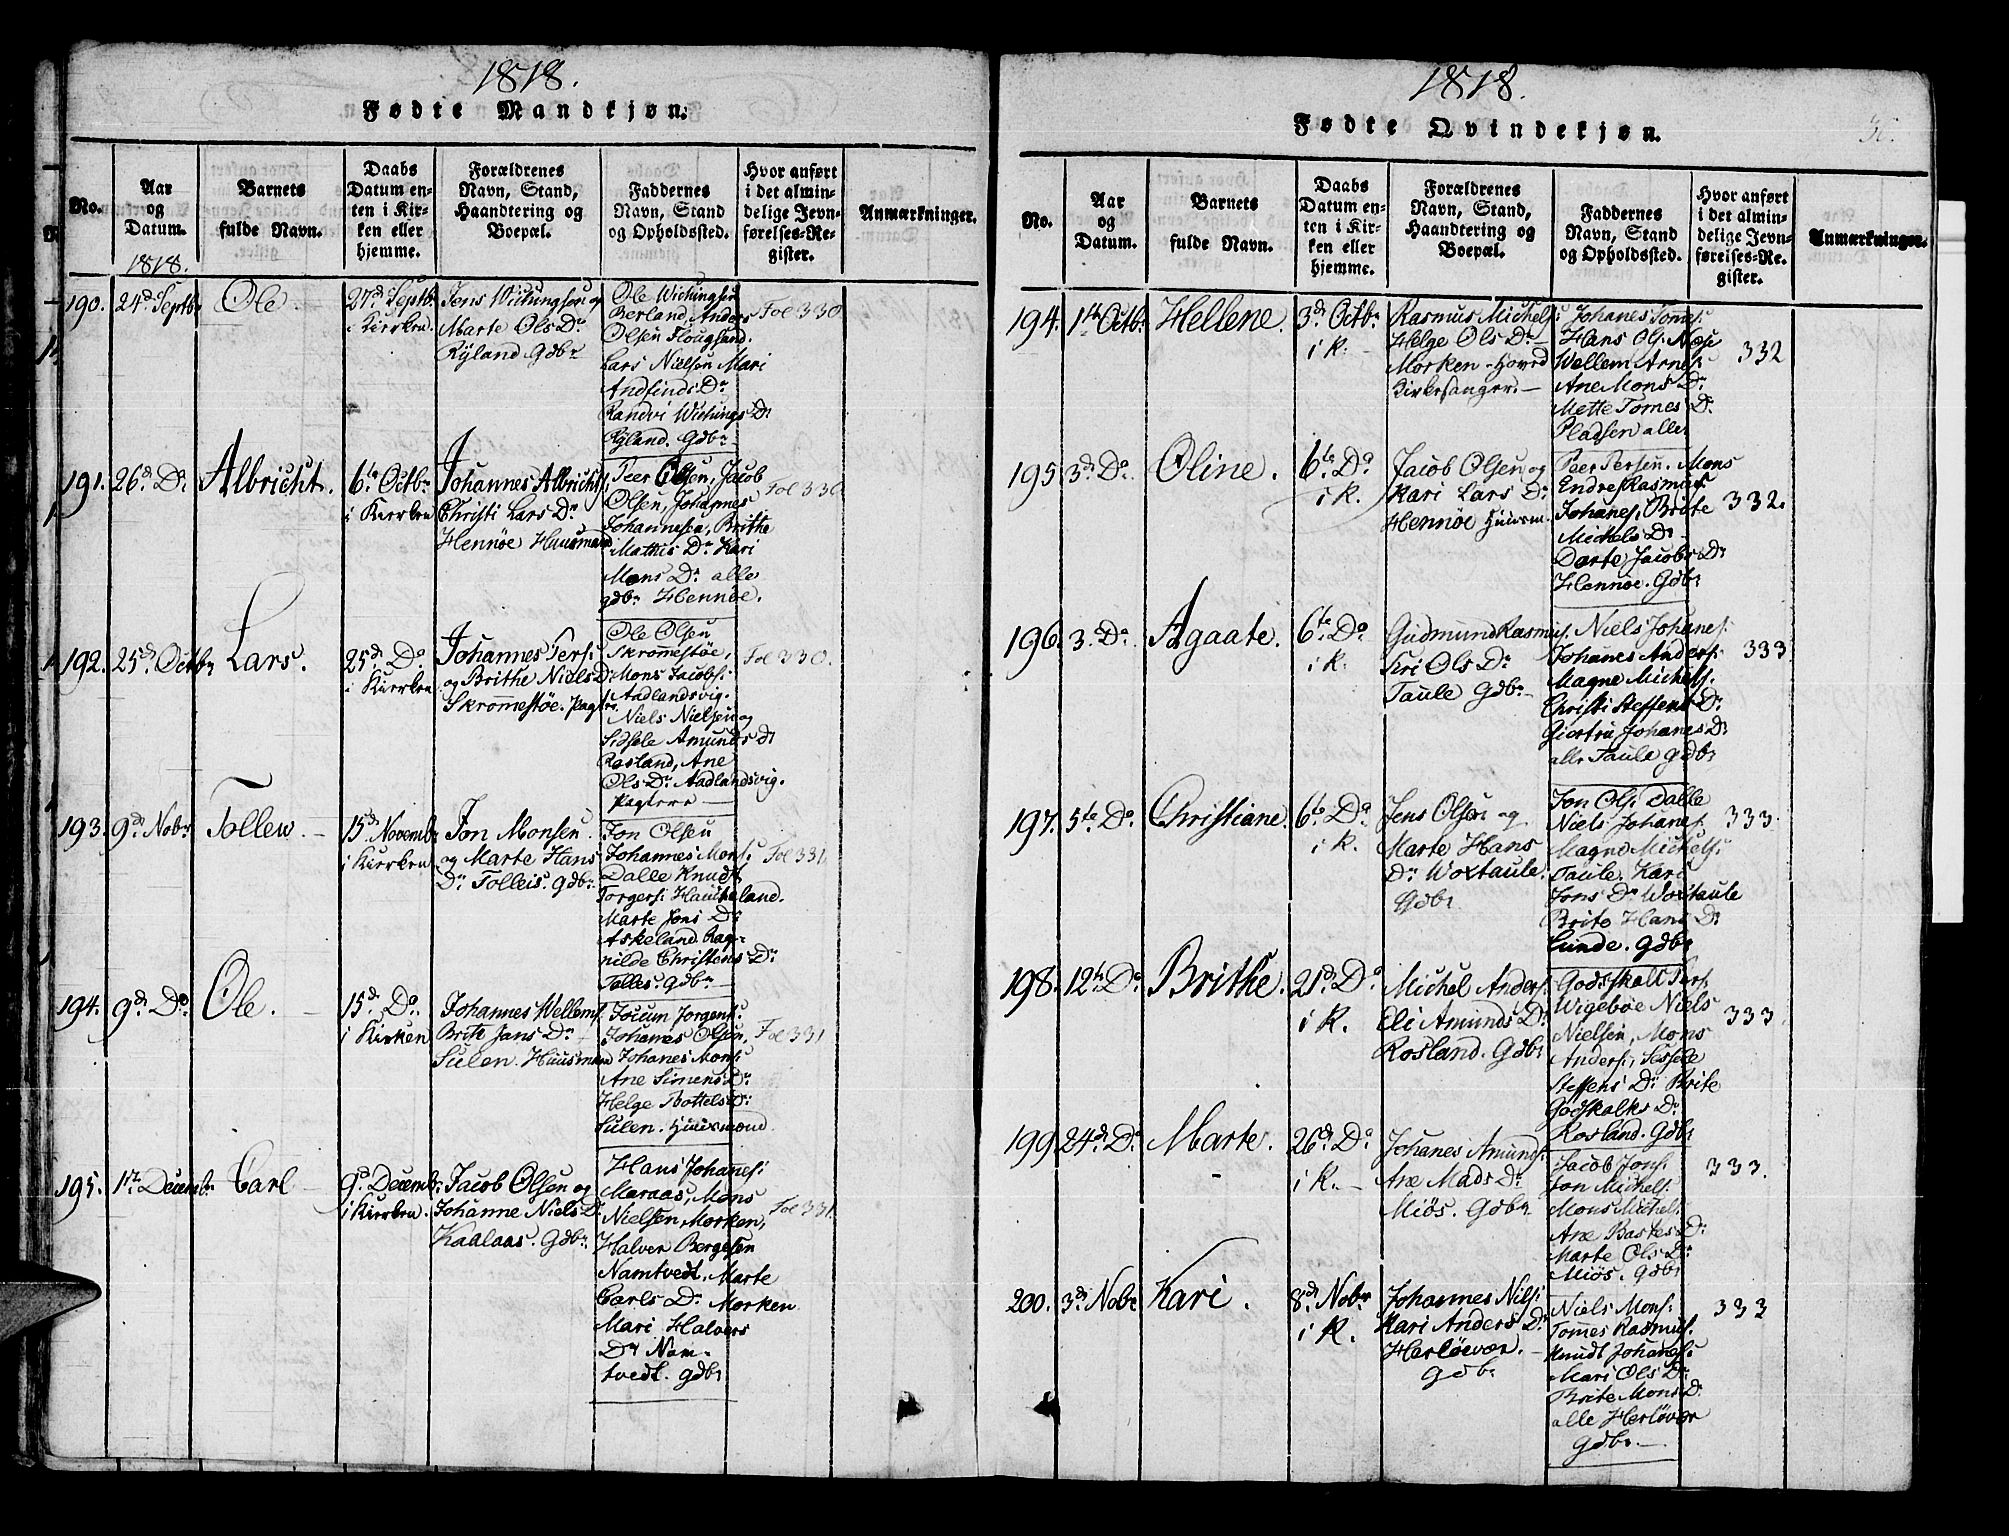 1818.
Fødte Mandkjøn.
No.
Aar
og
Datum.
1818.
Barnets
fulde Navn.
Daabs
Datum en-
ten i Kir-
ken eller
hjemme.
Forældrenes
Navn, Stand,
Haandtering og
Boepæl.
Faddernes
Navn, Stand
og Opholdssted.
Hvor anført
i det almin-
delige Jevn-
førelses-Re-
gister.
Anmærkninger.
190.
24d Septbr
Ole
27d Septbr
i Kirken.
Jens Wichingsen og
Marte Ols Dr
Ryland Gdbr
Ole Wichingsen
Berland, Anders
Olsen Flougsand.
Lars Nielsen Mari
Andfinds Dr
Randvi Wichings Dr
Ryland. Gdbr
Fol 330.
191.
26d Do
Albricht.
6te Octbr
i Kirken
Johannes Albrichts.
Christi Lars Dr
Hennøe Huusmand
Peer Olsen, Jacob
Olsen, Johannes
Johannessen, Brithe
Mathis Dr Kari
Mons Dr alle
gdbr Hennøe.
Fol 330
192.
25d Octbr
Lars.
25d Do
i Kirken
Johannes Pers.
og Brithe Niels Dr
Skromestøe. Pagter
Ole Olsen
Skromestøe,
Mons Jacobs.
Aadlandsvig.
Niels Nielsen og
Sidsele Amunds dr
Rosland, Ane
Ols Dr Aadlandsvig.
Pagtere
Fol 330.
193.
9d Nobr
Tollew
15d Novembr
i Kirken
Jon Monsen
og Marte Hans
Dr Tolleis. gdbr
Jon Olsen
Johannes Mons.
Dalle Knudt
Torgers. Haucheland.
Marte Jons Dr
Askeland. Rag-
nilde Christens Dr
Tolles. gdbr
Fol 331.
194.
9d Do
Ole.
15d Do
i Kirken
Johannes Wellems.
Brite Jans Dr
Sulen. Huusmand
Jocum Jorgens.
Johannes Olsen,
Johanes Mons.
Ane Simens Dr
Helge Bottels Dr
Sulen. Huusmænd.
Fol 331
195.
1te Decembr
Carl
9d Decembr
i Kirken.
Jacob Olsen og
Johanne Niels Dr
Kaalaas. Gdbr
Hans Johanes.
Maraas, Mons
Nielsen, Morken,
Halver Bergesen
Namtvedt, Marte
Carls Dr Morken.
Mari Halvers
Dr Nam-
tvedt. gdbr
Fol 331.
1818.
Fødte Qvindekjøn.
No.
Aar
og
Datum.
Barnets
fulde Navn.
Daabs
Datum en-
ten i Kir-
ken eller
hjemme.
Forældrenes
Navn, Stand,
Haandtering og
Boepæl.
Faddernes
Navn, Stand
og Opholdssted.
Hvor anført
i det almin-
delige Jevn-
førelses-Re-
gister.
Anmærkninger.
194.
1te Octbr
Hellene.
3d Octbr
i K.
Rasmus Michels.
Helge Ols Dr
Morken
Kirkesanger.
Johanes Tomes.
Hans Ols. Næse
Wellem Arnes.
Ane Mons Dr
Mette Tomes Dr
Pladsen alle
332
195
3d Do
Oline.
6te Do
i K.
Jacob Olsen og
Kari Lars Dr
Hennøe Huusm.
Peer Persen. Mons
Endres. Rasmus
Johanes, Brite
Michels Dr
Darte Jacobs Dr
Hennøe. Gdbr
332.
196.
3. Do
Agaate.
6te Do
i K.
Gudmund Rasmus.
Siri Ols Dr
Taule Gdbr
Niels Johanes.
Johanes Anders.
Magne Michels.
Christi Steffens Dr
Giertru Johanes Dr
alle Taule gdbr
333
197.
5te Do
Christiane.
6te Do
i K.
Jens Olsen og
Marte Hans
Dr Woxtaule.
Gdbr
Jon Ols. Dalle
Niels Johanes.
Magne Michels.
Taule. Kari
Jons Dr Woxtaule
Brite Hans Dr
Lunde. gdbr
333.
198.
12te Do
Brithe.
25d Do
i K.
Michel Anders.
Eli Amunds Dr
Rosland. Gdbr
Godskalk Pers.
Wigebøe Niels
Nielsen, Mons
Anders, Sessele
Steffens Dr Brite
Godskalks Dr
Rosland. Gdbr
333.
199
24d Do
Marte.
26d Do
i K.
Johanes Amunds.
Ane Mads Dr
Miøs. Gdbr
Jacob Jons.
Jon Michels.
Mons Michels.
Ane Bastes Dr
Marte Ols Dr
Miøs. Gdbr
333.
200.
3d Nobr
Kari.
8d Nobr
i K.
Johannes Nils.
Kari Anders Dr
Herløevær.
Gdbr
Niels Mons.
Tomes Rasmus.
Knudt Johanes.
Mari Ols Dr
Brite Mons Dr
alle Herløvær
Gdbr
333